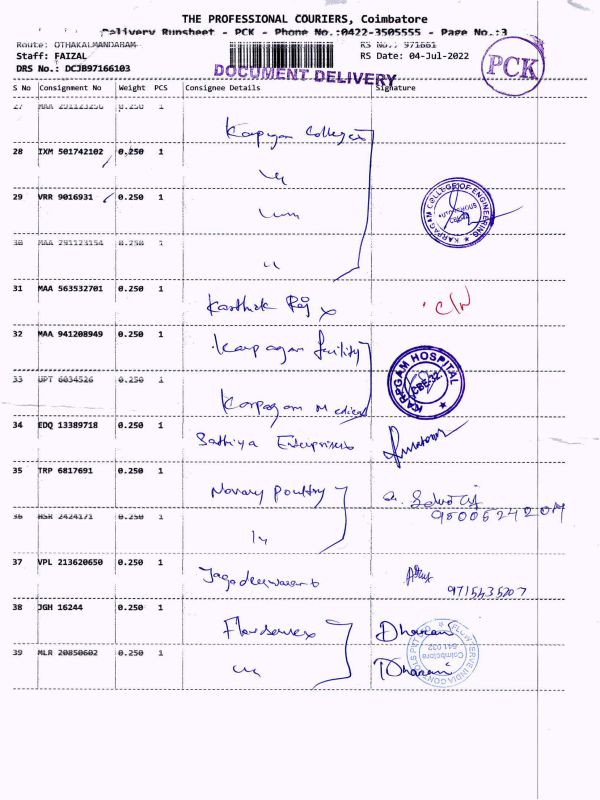 THE PROFESSIONAL COURIERS, Coimbatore
Delivery Runsheet - PCK - Phone No.:0422-3505555 - Page No.:3
Route: OTHAKALMANDABAM
RS No.: 971661
Staff: FAIZAL
RS Date: 04-Jul-2022
DRS No.: DCJB97166103
DOCUMENT DELIVERY
PCK
S No Consignment No Weight PCS Consignee Details Signature
27 MAA 291123256 0.250 1
Karpagam College
28 IXM 501742102 0.250 1
29 VRR 9016931 0.250 1
KARPAGAM COLLEGE OF ENGINEERING
30 MAA 291123154 0.250 1
31 MAA 563532701 0.250 1
Karthik Raj
C/N
32 MAA 941208949 0.250 1
Karpagam facility
KARPAGAM HOSPITAL
CBE-32
33 UPT 6034526 0.250 1
Karpagam Medical
34 EDQ 13389718 0.250 1
Sathiya Enterprises
35 TRP 6817691 0.250 1
Poultry
36 HSR 2424171 0.250 1
37 VPL 213620650 0.250 1
9715435207
38 JGH 16244 0.250 1
Flowserve
Dharani
39 MLR 20850602 0.250 1
Dharani
FLOWSERVE INDIA CONTROLS PVT LTD
Coimbatore
641 032